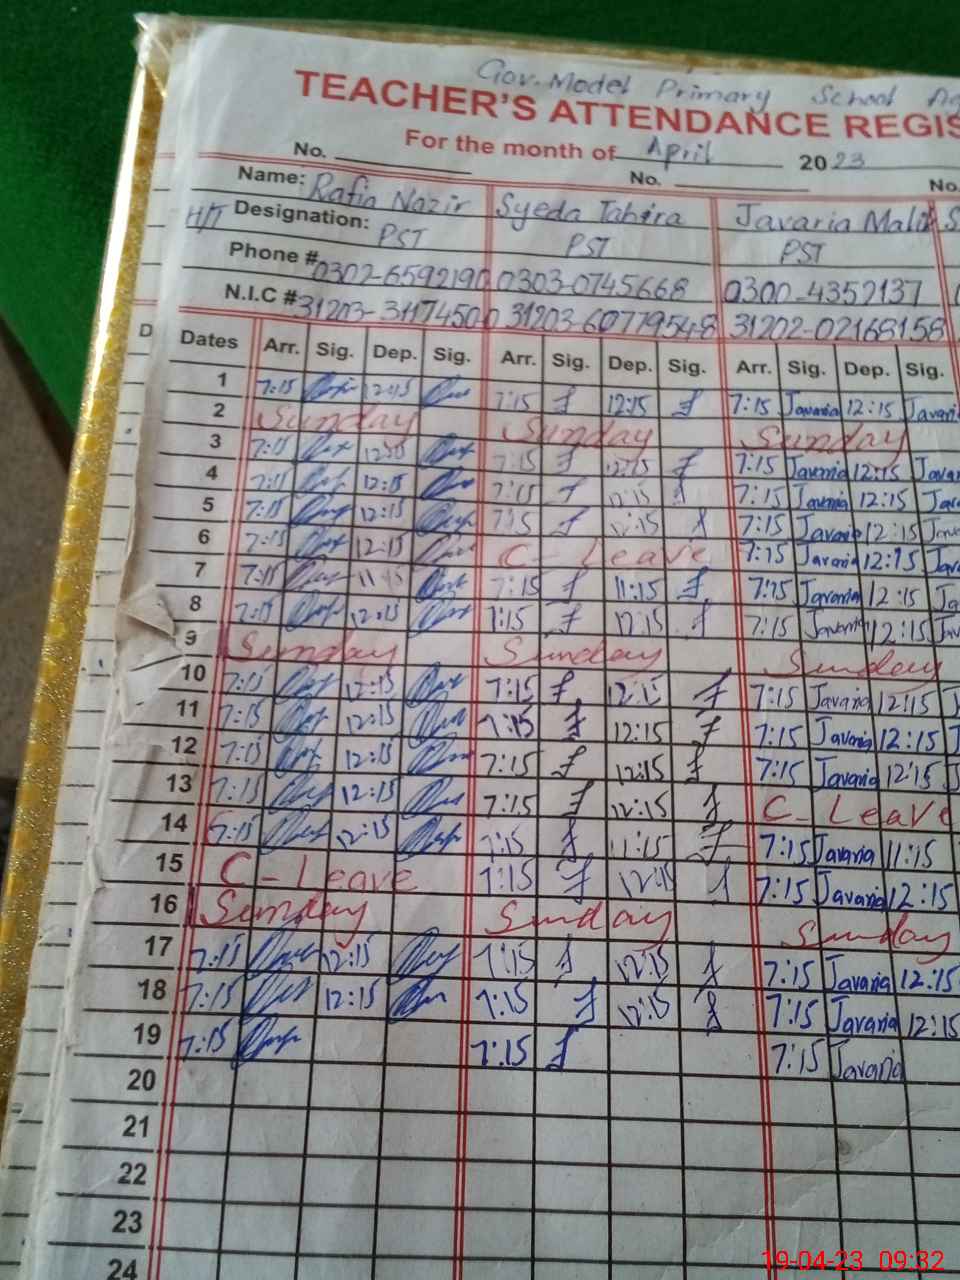 Gov. Model Primary School
TEACHER'S ATTENDANCE REGIS
For the month of April 2023
No. No. No.
Name: Rafia Nazir Syeda Tahira Javaria Malik S
H/T Designation: PST PST PST
Phone # 0302-6592190 0303-0745668 0300-4352137
N.I.C # 31203-31174500 31203-60779548 31202-02168158
D Dates Arr. Sig. Dep. Sig. Arr. Sig. Dep. Sig. Arr. Sig. Dep. Sig.
1 7:15 12:15 7:15 12:15 7:15 Javaria 12:15 Javari
2 Sunday Sunday Sunday
3 7:15 7:15 12:15 7:15 Javaria 12:15 Javar
4 7:15 12:15 7:15 12:15 7:15 Javaria 12:15 Jav
5 7:15 12:15 7:15 12:15 7:15 Javaria 12:15 Jav
6 7:15 12:15 C-Leave 7:15 Javaria 12:15 Jav
7 7:15 7:15 11:15 7:15 Javaria 12:15 Ja
8 7:15 12:15 7:15 12:15 7:15 Javaria 12:15 Jav
9 Sunday Sunday Sunday
10 7:15 12:15 7:15 12:15 7:15 Javaria 12:15 J
11 7:15 12:15 7:15 12:15 7:15 Javaria 12:15 J
12 7:15 12:15 7:15 12:15 7:15 Javaria 12:15 J
13 7:15 12:15 7:15 12:15 C-Leave
14 7:15 12:15 7:15 11:15 7:15 Javaria 11:15
15 C-Leave 7:15 12:15 7:15 Javaria 12:15
16 Sunday Sunday Sunday
17 7:15 12:15 7:15 12:15 7:15 Javaria 12:15
18 7:15 12:15 7:15 12:15 7:15 Javaria 12:15
19 7:15 7:15 7:15 Javaria
20
21
22
23
24
19-04-23 09:32